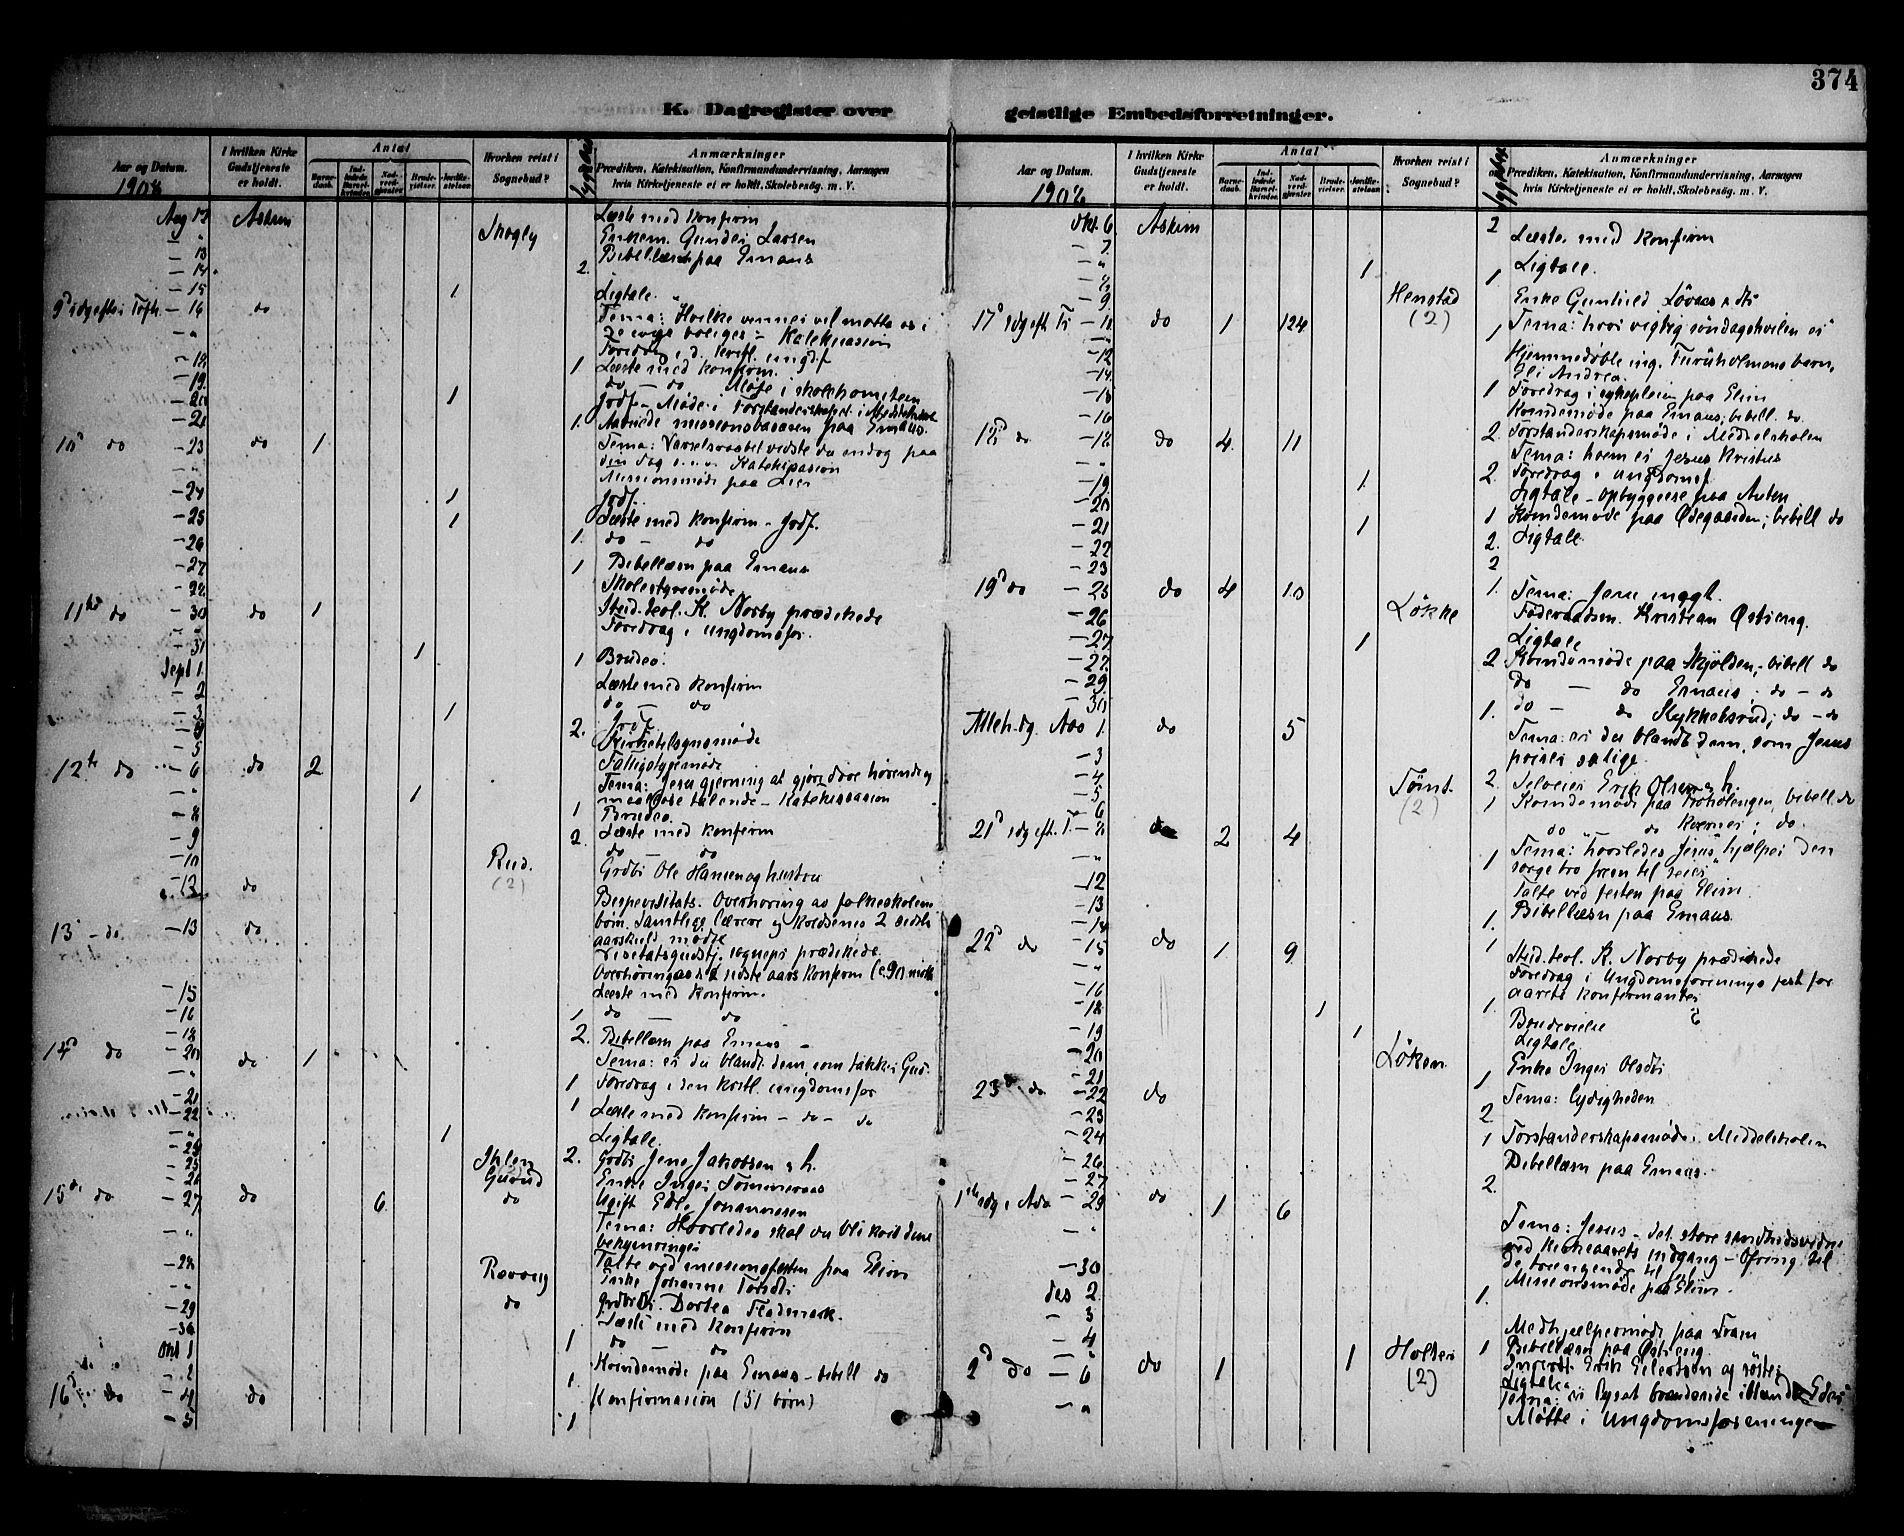 374
K. Dagregister over geistlige Embedsforretninger.
Aar og Datum. 1908
I hvilken Kirke Gudstjeneste er holdt.
Antal
Barnedaab. Indledede Barselkvinder. Nadverdgjæster. Brudevielser. Jordfæstelser.
Hvorhen reist i Sognebud?
Anmærkninger
Prædiken, Katekisation, Konfirmandundervisning, Aarsagen
hvis Kirketjeneste ei er holdt, Skolebesøg. m. V.
Aug 12 Askim Læste med konfirm
Skogly Enkem. Gunder Larsen
– 13 Bibellæsn paa Emaus
– 14 2.
– 15 1 Ligtale.
9d s dg efter Tefh. – 16 do Tema: Hvilke venner vil motta os i
de evige boliger – Katekisasion
Foredrag i d. kristl. ungd.f
– 18 1 Læste med konfirm.
– 19 do – do Møte i skolekomiteen
– 20 1 Jodf – Møde i Forstanderskabet i Middelskolen
– 21 1. Aabnede missionsbasaren paa Emaus.
10d do – 23 do 1 Tema: Varselsraabet vidste du endog paa
den dag .... Katekisasion
Missionsmøde paa Lier
– 24 1 Jodf.
– 25 1 Læste med konfirm – Jodf.
– 26 1. do – do
– 27 1 Bibellæsn paa Emaus
– 28 Skolestyremøde
11te do – 30 do 1 Stud. teol. K. Norby prædikede
Foredrag i ungdomsfor.
– 31 1
Sept 1. 1 Brudev.
– 2 Læste med konfirm
– 3 1 do – do
– 4 2. Jodf.
– 5 Kirketilsynsmøde
12te do – 6 do 2 Fattigstyremøde
Tema: Jesu gjerning at gjøre døve hørende og
1 maalløse talende – Katekisasion
– 8 1 Brudev.
– 9 2. Læste med konfirm
– 10 do – do
Rud. (2) Grdbr Ole Hansen og hustru
– 12 do
Bispevisitats. Overhøring av folkeskolens
13 – do – 13 do børn. Samtlige lærere og kredsenes 2 sidste
aarskuld mødte
Visitatsgudstj. sognepr prædikede
Overhøring av d sidste aars konfirm (c. 90 møtte
– 15 Læste med konfirm.
– 16 1 do – do
– 18 2. Bibellæsn paa Emaus –
14d do – 20 do 1 Tema: er du blandt dem, som takker Gud.
1 Foredrag i den kristl. ungdomsfor
– 21
– 22 1 Læste med konfirm – do – do
1 Ligtale.
– 24 2. Grdbr Jens Jakobsen & h.
– 25
– 26 Enke Inger Tømmeraas
15de do – 27 do 6 do Ugift Edle Johannesen
Tema: Hvorledes skal du bli kvit dine
bekymringer
– 28 Talte ved missionsfesten paa Elim
Enke Johanne Torsdtr
– 29 do Dortea Fladmark.
– 30 Læste med konfirm
Okt 1 1 do – do
– 2 1. Kvindemøde paa Emaus – bibell do
16d do – 4 do Konfirmasion (51 børn)
– 5 1
Aar og Datum. 1908
I hvilken Kirke Gudstjeneste er holdt.
Antal
Barnedaab. Indledede Barselkvinder. Nadverdgjæster. Brudevielser. Jordfæstelser.
Hvorhen reist i Sognebud?
Anmærkninger
Prædiken, Katekisation, Konfirmandundervisning, Aarsagen
hvis Kirketjeneste ei er holdt, Skolebesøg. m. V.
Okt. 6 Askim 2 Læste med konfirm
– 7
– " 1 Ligtale.
– 8 1
– 9 Henstad (2) Enke Gunhild
17d s dg eft. Tr – 11 do 1 124 1 Tema: hvor vigtig søndagshvilen er
– 12 Hjemmedøbte ing. Furuholmens barn,
– 14 Andrea.
– 15 1 Foredrag i sykepleien paa Elim
– 16 Kvindemøde paa Emaus; bibell. do
18d do – 18 do 4. 11 2. Forstanderskapsmøde i Middelskolen
– " Tema: hvem er Jesus Kristus
– 19 1 2. Foredrag i ungdomsf.
– 20 Ligtale – opbyggelse paa
– 21 1 1 Kvindemøde paa Ødegaarden; bibell do
– 22 2. Ligtale
– 23 2
19d do – 25 do 4 10 1. Tema: Jesu
– 26 Løkke Føderaadsm. Kristian Østreng.
– 27 1 Ligtale
– 28 2 Kvindemøde paa Skjolden; bibell do
– 29 do – do Emaus; do – do
– 30 1. do – do Slykkelsrud; do – do
Alleh. dg. Nov 1. do 5 Tema: er du blandt dem, som Jesus
priser salige
– 3
– 4 Tømt. (2) 2. Selveier Erik Olsen & h.
– 5 1 Kvindemøde paa bibell. do
– 6 do do do.
21d s dg eft. T. – 8 do 2 4 1 Tema: "hvorledes Jesus hjælper den
– " sorgetro frem til seier"
– 12 Talte ved festen paa Elim
– 13 1. Bibellæsn paa Emaus
– 14
22d do – 15 do 1 9 1 Stud. teol. K. Norby prædikede
– " Foredrag i Ungdomsforenings fest for
– 16 aarets konfirmanter
– 18 1 1
– 19 1 Brudevielse
– 20 Løken Ligtale
– 21 1 Enke Inger Olsdtr
23de do – 22 do Tema: lydigheden
– 23 2
– 24 1 Forstanderskapsmøde i Middelskolen
– 26 Bibellæsn paa Emaus
– 27 2.
1ste s dg i Adv – 29 do 1 6 Tema: Jesus – det store sandhedsvidne
– " ved kirkeaarets indgang – Ofring til
de trængende til jul
– 30 Missionsmøde paa Elim
Des 2 1.
– 3 Medhjælpermøde paa Fram
– 4 1 Bibellæsn paa Østreng
2d do – 6 do 1 1 (2) Erik Eilertsen og søster
Ligtale
Tema: er lyset brændende iblandt Eder
– " Møtte i Ungdomsforeningen